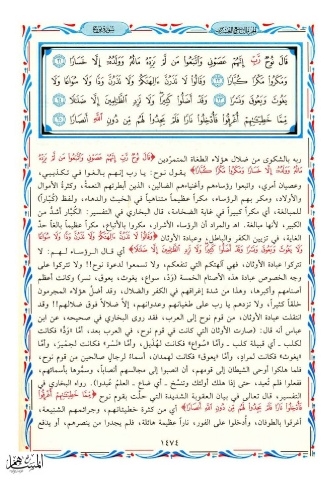 سورة نوح
قَالَ نُوحٌ رَّبِّ إِنَّهُمْ عَصَوْنِي وَاتَّبَعُوا مَن لَّمْ يَزِدْهُ مَالُهُ وَوَلَدُهُ إِلَّا خَسَارًا
وَمَكَرُوا مَكْرًا كُبَّارًا وَقَالُوا لَا تَذَرُنَّ آلِهَتَكُمْ وَلَا تَذَرُنَّ وَدًّا وَلَا سُوَاعًا وَلَا
يَغُوثَ وَيَعُوقَ وَنَسْرًا وَقَدْ أَضَلُّوا كَثِيرًا وَلَا تَزِدِ الظَّالِمِينَ إِلَّا ضَلَالًا
مِّمَّا خَطِيئَاتِهِمْ أُغْرِقُوا فَأُدْخِلُوا نَارًا فَلَمْ يَجِدُوا لَهُم مِّن دُونِ اللَّهِ أَنصَارًا
ربه بالشكوى من ضلال هؤلاء الطغاة المتمردين ﴿قَالَ نُوحٌ رَّبِّ إِنَّهُمْ عَصَوْنِي وَاتَّبَعُوا مَن لَّمْ يَزِدْهُ
مَالُهُ وَوَلَدُهُ إِلَّا خَسَارًا وَمَكَرُوا مَكْرًا كُبَّارًا﴾ يقول نوح: يا رب إنهم بالغوا في تكذيبي،
وعصيان أمري، واتبعوا رؤساءهم وأغنياءهم الضالين، الذين أبطرتهم النعمة، وكثرة الأموال
والأولاد، ومكر بهم الرؤساء، مكراً عظيماً متناهياً في الخبث والدهاء، ولفظ (كُبَّاراً)
للمبالغة، أي مكراً كبيراً في غاية الضخامة، قال البخاري في التفسير: الكُبَّار أشدُّ من
الكبير، لأنها مبالغة. اهـ والمراد أن الرؤساء الأشرار، مكروا بالأتباع، مكراً عظيماً بالغاً حدَّ
الغاية، في تزيين الكفر والباطل، وعبادة الأوثان ﴿وَقَالُوا لَا تَذَرُنَّ آلِهَتَكُمْ وَلَا تَذَرُنَّ وَدًّا وَلَا سُوَاعًا
وَلَا يَغُوثَ وَيَعُوقَ وَنَسْرًا وَقَدْ أَضَلُّوا كَثِيرًا وَلَا تَزِدِ الظَّالِمِينَ إِلَّا ضَلَالًا﴾ أي قال الرؤساء لهم: لا
تتركوا عبادة الأوثان، فهي آلهتكم التي تنفعكم، ولا تسمعوا لدعوة نوح!! ولا تتركوا على
وجه الخصوص عبادة هذه الأصنام الخمسة (وَدّ، سواع، يغوث، يعوق، نسر) وكانت أعظم
أصنامهم وأكبرها، وهذا من شدة إغراقهم في الكفر والضلال، وقد أضلَّ هؤلاء المجرمون
خلقاً كثيراً، ولا تزدهم يا رب على طغيانهم وعدوانهم، إلاَّ ضلالاً فوق ضلالهم!! وقد
انتقلت عبادة الأوثان، من قوم نوح إلى العرب، فقد روى البخاري في صحيحه، عن ابن
عباس أنه قال: (صارت الأوثان التي كانت في قوم نوح، في العرب بعد، أمَّا «وَدّ» فكانت
لكلب ـ أي قبيلة كلب ـ وأمَّا «سُواع» فكانت لهُذيل، وأمَّا «نَسْر» فكانت لحِمْيَر، وأمَّا
«يغوث» فكانت لمراد، وأمَّا «يعوق» فكانت لهمدان، أسماءُ لرجالٍ صالحين من قوم نوح،
فلما هلكوا أوحى الشيطان إلى قومهم، أن انصبوا إلى مجالسهم أنصاباً، وسمُّوها بأسمائهم،
ففعلوا فلم تُعبد، حتى إذا هلك أولئك وتَنَسَّخَ ـ أي ضاع ـ العلمُ عُبدوا). رواه البخاري في
التفسير، قال تعالى في بيان العقوبة الشديدة التي حلَّت بقوم نوح ﴿مِّمَّا خَطِيئَاتِهِمْ أُغْرِقُوا
فَأُدْخِلُوا نَارًا فَلَمْ يَجِدُوا لَهُم مِّن دُونِ اللَّهِ أَنصَارًا﴾ أي من كثرة خطيئاتهم، وجرائمهم الشنيعة،
أُغرقوا بالطوفان، وأُدخلوا على الفور، ناراً عظيمة هائلة، فلم يجدوا من ينصرهم، أو يدفع
١٤٧٤